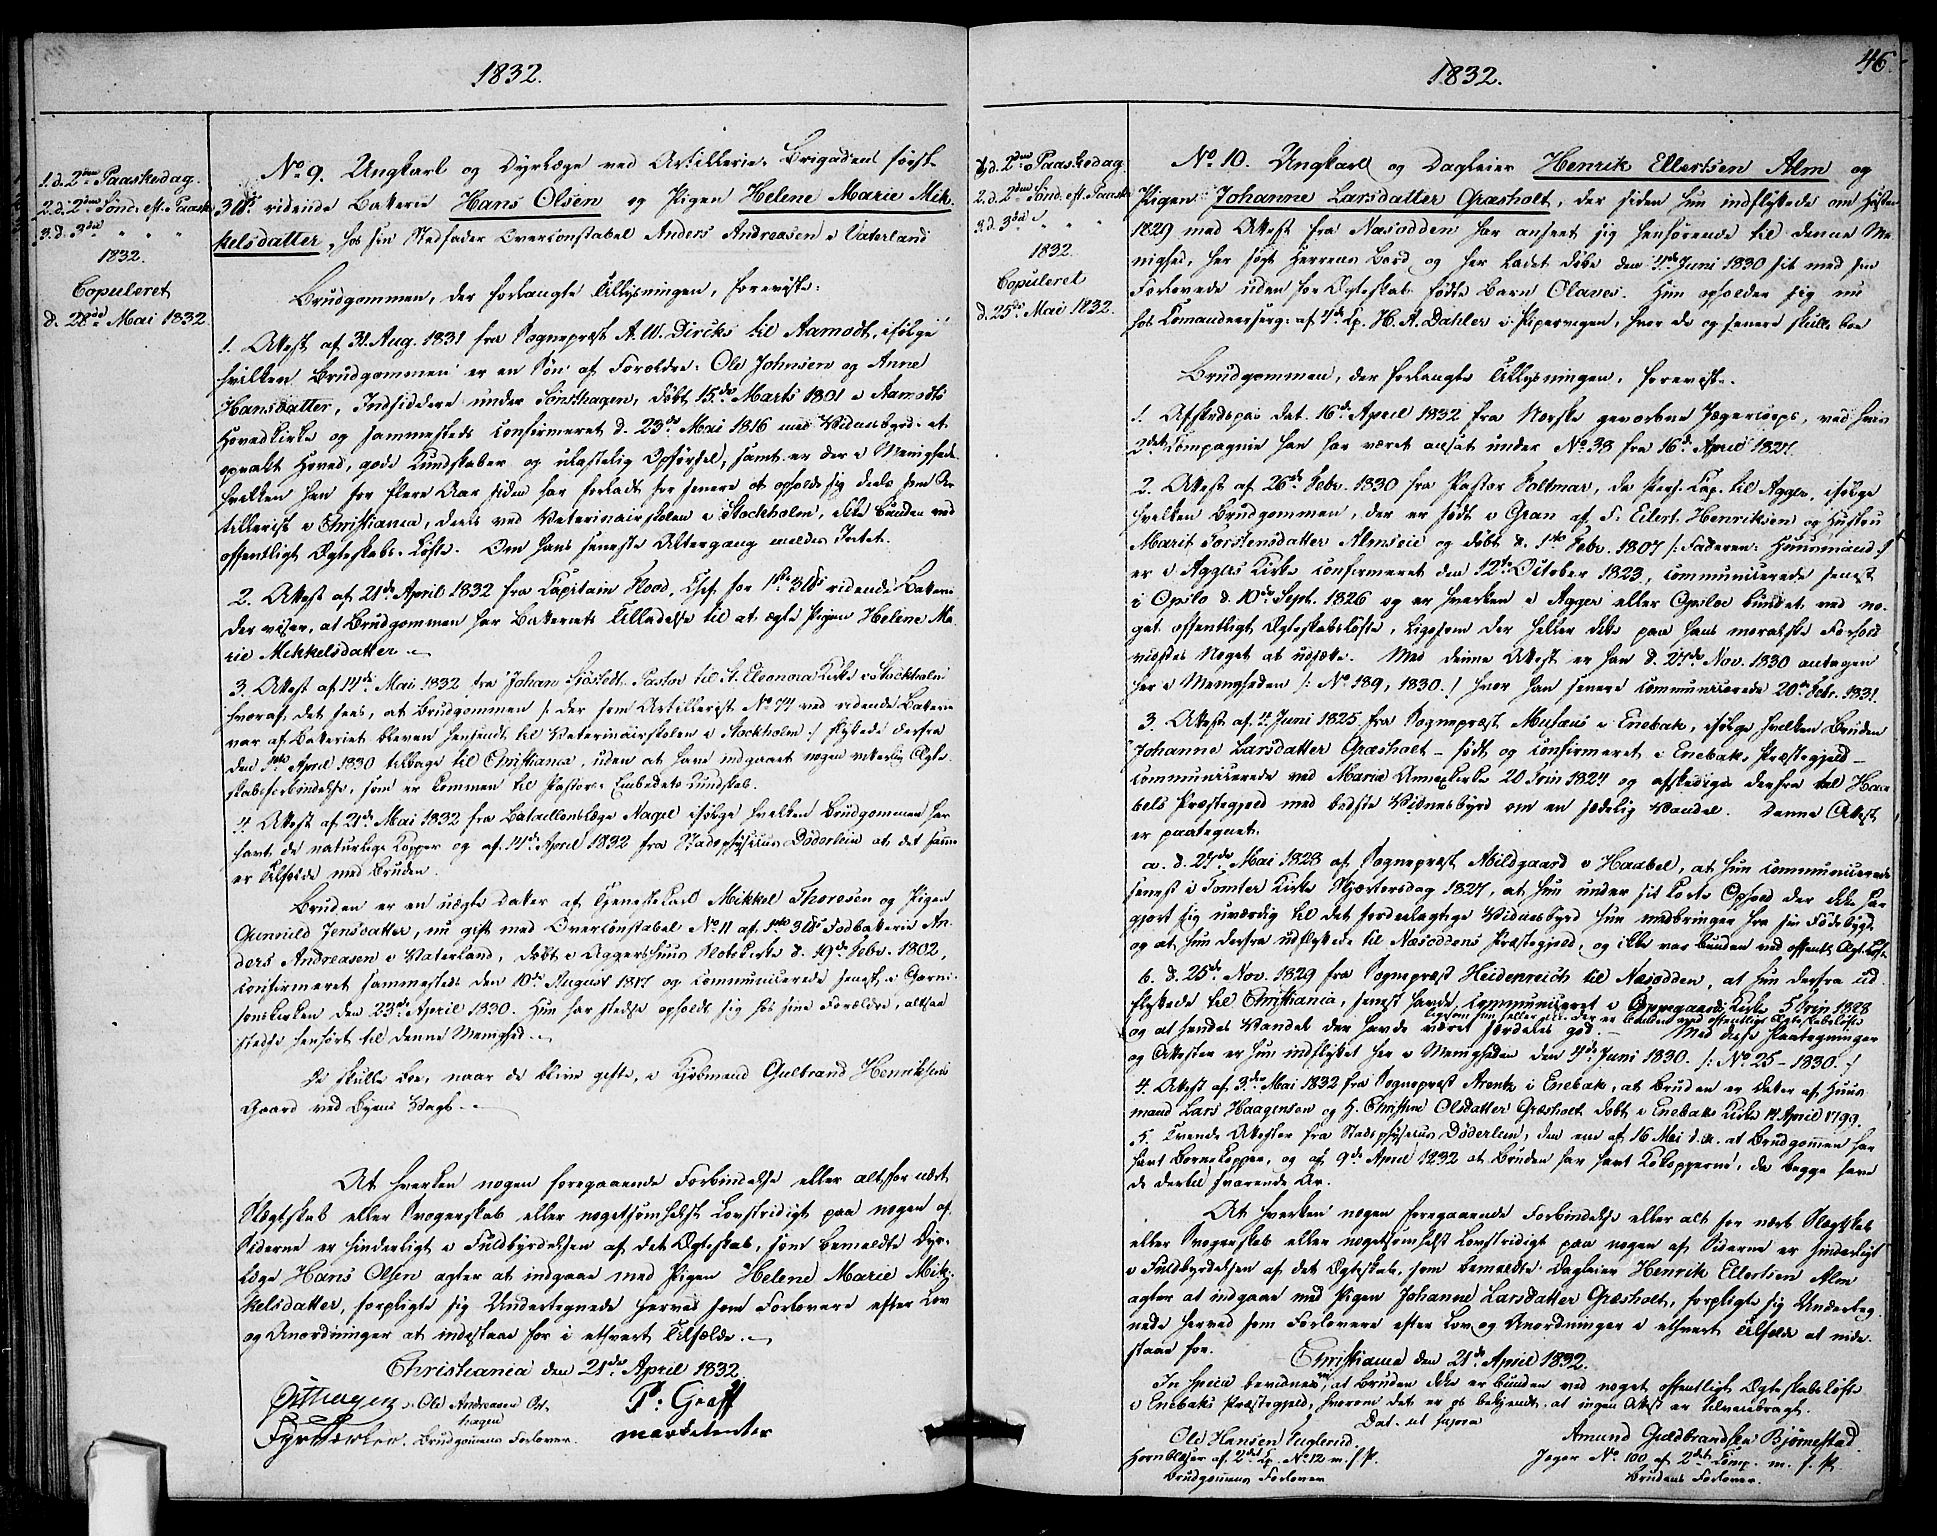 1832.
1.d. 2den Paaskedag.
2.d. 2den Sönd. eft. Paaske
3.d. 3die " " "
1832.
Copuleret
d. 28de Mai 1832.
No 9. Ungkarl og Dyrlæge ved Artillerie-Brigadens först
3℔s ridende Batterie Hans Olsen og Pigen Helene Marie Mik-
kelsdatter, hos sin Stedfader Overconstabel Anders Andreasen i Vaterland
Brudgommen, der forlangte Tillysningen, foreviste:
1. Attest af 31 Aug. 1831 fra Sognepræst A. W. Dircks til Aamodt, ifölge
hvilken Brudgommen er en Sön af Forældre: Ole Johnsen og Anne
Hansdatter, Indsiddere under Sönsthagen, döbt 15de Marts 1801 i Aamodts
Hovedkirke og sammesteds confirmeret d. 23de Mai 1816 med Vidnesbyrd: et
godt Hoved, gode Kundskaber og ulastelig Opförsel, samt er der i Menighed
hvilken han for flere Aar siden har forladt for senere at opholde sig deels som Ar-
tillerist i Christiania, deels ved Veterinairskolen i Stockholm, ikke bunden ved
offentligt Ægteskabs-Löfte. Om hans seneste Altergang meldes Intet.
2. Attest af 21de April 1832 fra Capitain Flood, Chef for 1ste 3℔s ridende Batteri
der viser, at Brudgommen har Batteriets Tilladelse til at ægte Pigen Helene Ma-
rie Mikkelsdatter.
3. Attest af 14de Mai 1832 fra Johan Sjöstedt Pastor til St. Eleonora Kirke i Stockholm
hvoraf det sees, at Brudgommen /: der som Artillerist No 74 ved ridende Batterie
var af Batteriet bleven hensendt til Veterinairskolen i Stockholm :/ flyttede derfra
den 1ste April 1830 tilbage til Christiania, uden at have indgaaet nogen vitterlig Ægte-
skabsforbindelse, som er kommen til Pastors-Embedets Kundskab.
4. Attest af 21de Mai 1832 fra Bataillonslæge Nagel ifölge hvilken Brudgommen har
havt de naturlige Kopper og af 14de April 1832 fra Stadsphysicus Döderlein at det samme
er Tilfælde med Bruden.
Bruden er en uægte Datter af Tjenestekarl Mikkel Thoresen og Pigen
Gunnild Jensdatter, nu gift med Overconstabel No 11 af 1ste 3℔s Fodbatterie An-
ders Andreasen i Vaterland, döbt i Aggershuus Slotskirke d. 19de Febr. 1802,
confirmeret sammesteds den 10de August 1817 og communicerede senest i Garni-
sonskirken den 23de April 1830. Hun har stedse opholdt sig hos sine Forældre, altsaa
stedse henhört til denne Menighed.
De skulle boe, naar de blive gifte, i Kjöbmand Gulbrand Henriksens
Gaard ved Byens Vagt.
At hverken nogen foregaaende Forbindelse eller altfor nært
Slægtskab eller Svogerskab eller nogetsomhelst Lovstridigt paa nogen af
Siderne er hinderligt i Fuldbyrdelsen af det Ægteskab, som bemeldte Dyr-
læge Hans Olsen agter at indgaae med Pigen Helene Marie Mik-
kelsdatter, forpligte sig Undertegnede herved som Forlovere efter Lov
og Anordninger at indestaae for i ethvert Tilfælde.
Christiania den 21de April 1832.
Ole Andreasen Ost-
hagen
Brudgommens Forlover.
P. Graff
marketenter
46.
1832.
1.d. 2den Paaskedag
2.d. 2den Sönd. eft. Paaske
3.d. 3die " " "
1832.
Copuleret
d. 25de Mai 1832.
No 10. Ungkarl og Dagleier Henrik Ellertsen Alm og
Pigen Johanne Larsdatter Græsholt, der siden hun indflyttede om Hösten
1829 med Attest fra Næsodden har anseet sig henhörende til denne Me-
nighed, her sögt Herrens Bord og her ladet döbe den 4de Juni 1830 sit med sin
Forlovede uden for Ægteskab födte Barn Olaves. Hun opholder sig nu
hos Comandeersergt af 4de Cp. H. A. Dahler i Pipervigen, hvor de og senere skulle boe
Brudgommen, der forlangte Tillysningen, foreviste.
1. Afskedspas dat. 16de April 1832 fra Norske gevorbne Jægercorps, ved hvis
2det Compagnie han har været ansat under No 38 fra 16de April 1827.
2. Attest af 26de Febr. 1830 fra Pastor Foltmar, da Pers. Cap. til Agger, ifölge
hvilken Brudgommen, der er födt i Gran af F. Eilert Henriksen og Hustru
Marit Torstensdatter Almseie og döbt d. 1ste Febr. 1807 /: Faderen: Huusmand :/
er i Aggers Kirke confirmeret den 12te October 1823, communicerede senest
i Opslo d. 10de Sept. 1826 og er hverken i Agger eller Opsloe bundet ved no-
get offentligt Ægteskabslöfte, ligesom der heller ikke paa hans moralske Forhold
vidstes Noget at udsætte. Med denne Attest er han d. 27de Nov. 1830 antagen
her i Menigheden /: No 189, 1830. :/ hvor han senere communicerede 20de Febr. 1831.
3. Attest af 4 Juni 1825 fra Sognepræst Musæus i Enebak, ifölge hvilken Bruden
Johanne Larsdatter Græsholt – födt og confirmeret i Enebaks Præstegjeld –
communicerede ved Mariæ Annexkirke 20 Trin 1824 og afskediges derfra til Haa-
böls Præstegjeld med bedste Vidnesbyrd om en sædelig Vandel. Denne Attest
er paategnet.
a. d. 27de Mai 1828 af Sognepræst Abildgaard i Haaböl, at hun communicerede
senest i Tomter Kirke Skjærtorsdag 1827, at hun under sit korte Ophold der ikke har
gjort sig uværdig til det fordeelagtige Vidnesbyrd hun medbringer fra sin Födebygd
og at hun derfra udflyttede til Næsoddens Præstegjeld, og ikke var bunden ved offentl. Ægt. Löfte
b. d. 25de Nov. 1829 fra Sognepræst Heidenreich til Næsodden, at hun derfra ud-
flyttede til Christiania, senest havde communiceret i Oppegaards Kirke 5 Trin 1828
ligesom hun heller ikke der er bunden ved offentligt Ægteskabslöfte
og at hendes Vandel der havde været særdeles god. – Med disse Paategninger
og Attester er hun indflyttet her i Menigheden den 4de Juni 1830. /: No 25 – 1830. :/
4. Attest af 3de Mai 1832 fra Sognepræst Arentz i Enebak, at Bruden er Datter af Huus-
mand Lars Haagensen og H. Christine Olsdatter Græsholt, döbt i Enebaks Kirke 14 April 1799.
5. Tvende Attester fra Stadsphysicus Döderlein, den ene af 16 Mai d. A. at Brudgommen har
havt Börnekopper, og af 9de April 1832 at Bruden har havt Kokopperne, da begge have
de dertil svarende Ar.
At hverken nogen foregaaende Forbindelse eller alt for nært Slægtskab
eller Svogerskab eller nogetsomhelst Lovstridigt paa nogen af Siderne er hinderligt
i Fuldbyrdelsen af det Ægteskab, som bemeldte Dagleier Henrik Ellertsen Alm
agter at indgaae med Pigen Johanne Larsdatter Græsholt, forpligte sig Underteg-
nede herved som Forlovere efter Lov og Anordninger i ethvert Tilfælde at inde-
staae for. Christiania den 21de April 1832.
In specie bevidnes, at Bruden ikke er bunden ved noget offentligt Ægteskabslöfte
i Enebaks Præstegjeld, hvorom det er os bekjendt, at ingen Attest er tilveiebragt.
Dat. ut supra
Ole Hansen Fuglerud.
Hornblæser af 2det Cp. No 12 m. f. P.
Brudgommens Forlover
Amund Guldbrandsen Björnestad.
Jæger No 100 af 2det Comp. m. f. P.
Brudens Forlover.